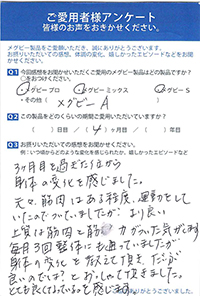 ご愛用者様アンケート
皆様のお声をおきかせください。
メグビー製品をご愛顧いただき、誠にありがとうございます。
お摂りいただいての感想、体調の変化、嬉しかったエピソードなどをお聞か
せください。
Q1 今回感想をおきかせいただくご愛用のメグビー製品はどの製品ですか？
○をつけください。
・メグビープロ ・メグビーミックス ・メグビーS
・その他（ メグビーA ）
Q2 この製品をどのくらいの期間ご愛用いただいていますか？
（ ）日目／（ 4 ）ヶ月／（ ）年目
Q3 お摂りいただいての感想をお聞かせください。
例：いつ頃からどのような変化を感じられたか、嬉しかったエピソードなど
3ヶ月目を過ぎたころから
身体の変化を感じました。
元々、筋肉はある程度、運動をして
いたのでついていましたが、より良い
上質な筋肉と筋力がついた気がします
毎月3回整体にも通っていましたが
身体の変化を教えて頂き、だいぶ
良いのでは？とおっしゃって頂きました。
とても良くなっていると感じます。
ありがとうございました。